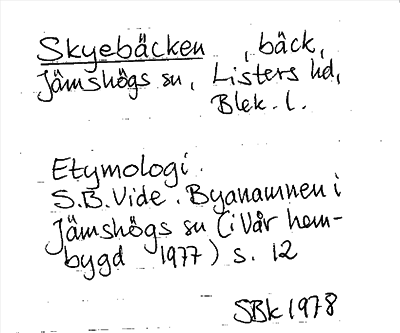 Skyebäcken, bäck,
Jämshögs sn, Listers hd,
Blek. l.
Etymologi.
S.B. Vide. Byanamnen i
Jämshögs sn (i Vår hem-
bygd 1977) s. 12
SBk 1978